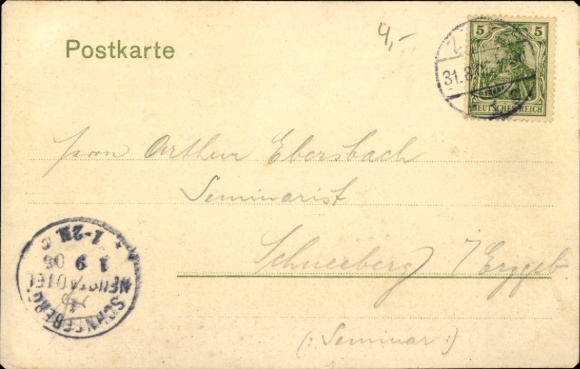 4,-
Postkarte
5 5
DEUTSCHES REICH
31.8.
Herrn Arthur Ebersbach
Seminarist
Schneeberg i/Erzgeb
(: Seminar :)
SCHNEEBERG
NEUSTÄDTEL
1 9 05
1-2N